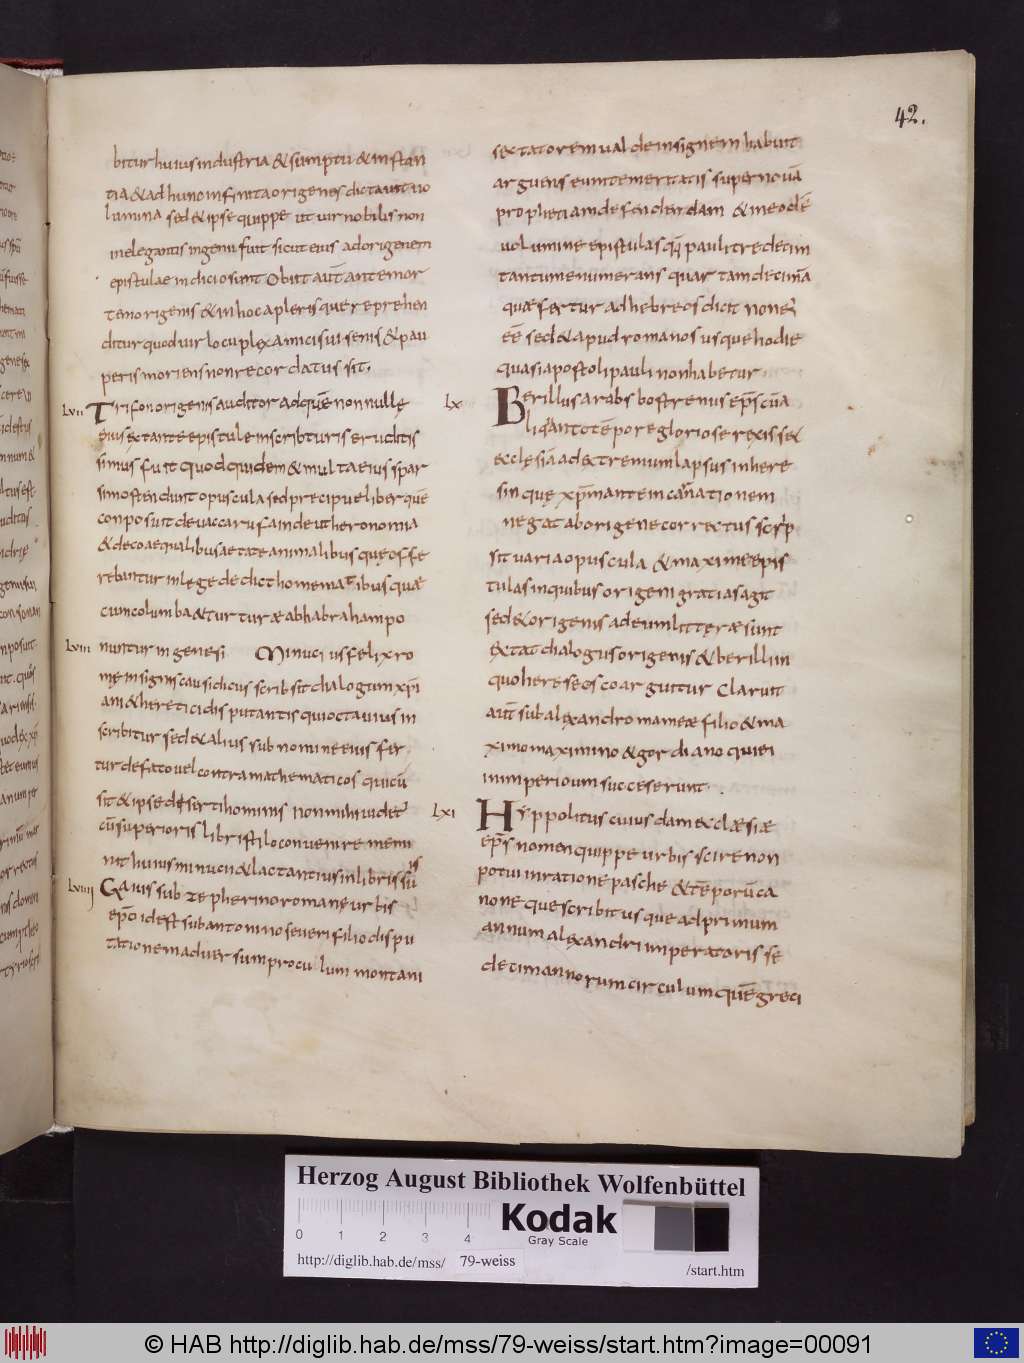 42.
biturhuius industria & sumptu & instan
tia & adhuc infinita origenes dictauit uo
lumina sed & ipse quippe ut uir nobilis non
inelegantis ingenii fuit sicut eius adorigenem
epistulae indicio sunt Obiit aut̄ ante mor
tem origenis & in hoc a pleris que reprehen
ditur quod uir locuplex amici sui senis & pau
peris moriens non recordatus sit.
Lvii Trifon origenis auditor ad quē nonnullę
eius extante epistule inscribturis eruditis
simus fuit quod quidem & multa eius spar
sim ostendunt opuscula sed precipue liber quē
conposuit deuacca rufa in deutheronomia
& decoaequalibus aetate animalibus quę offe
rebantur in lege dedicthomematibus quae
cum columba & turturæ abhabraham po
Lviii nuntur in genesi Minucius felix ro
mę insignis causidicus scribsit dialogum xp̄i
ani & heretici disputantis qui octauius in
scribitur sed & alius sub nomine eius fer
tur defato uel contra mathematicos qui cū
sit & ipse deserti hominis non mihi uidet̄
cū superioris libri stilo conuenire memi
nit huius minucii & lactantius in libris su
is
Lviiii Gaius sub zephermo romane urbis
ep̄o id est sub antonino seueri filio dispu
tationem aduersum proculum montani
sectatorem ualde insignem habuit
arguens eum temeritatis super nouā
prophetiam defendendam & in eodē
uolumine epistulas q̄q̄ pauli tredecim
tantum enumerans quartam decimā
quae fertur ad hebreos dicit non ei
eē sed & apud romanos usque hodie
quasi apostoli pauli non habetur
Lx Berillus arabs bostrenus ep̄s cū a
liqāanto tēpore gloriose rexisset
ecclesiā ad extremum lapsus in here
sin quę xp̄m ante incarnationem
negat ab origene correctus scrip
sit uaria opuscula & maxime epis
tulas in quibus origeni gratias agit
sed & origenis ad eum litteræ sunt
extat dialogus origenis & berilli in
quo hereseos coarguitur Claruit
aut̄ sub alexandro mameæ filio & ma
ximo maximino & gordiano qui ei
in imperioum succeserunt.
Lxi Hyppolitus cuiusdam exclæsiæ
ep̄s nomen quippe urbis scire non
potui in ratione pasche & tēporū ca
none que scribit usque ad primum
annum alexandri imperatoris se
decim annorum circulum quē greci
Herzog August Bibliothek Wolfenbüttel
0 1 2 3 4
Kodak
Gray Scale
http://diglib.hab.de/mss/ 79-weiss
/start.htm
© HAB http://diglib.hab.de/mss/79-weiss/start.htm?image=00091